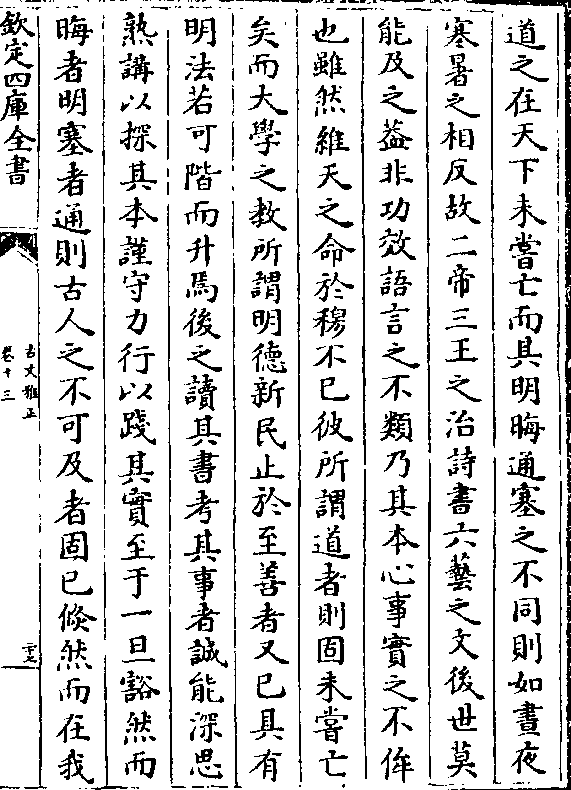 道之在天下未嘗亡而其明晦通塞之不同則如晝夜
寒暑之相反故二帝三王之治詩書六藝之文後世莫
能及之葢非功效語言之不類乃其本心事實之不侔
也雖然維天之命於穆不已彼所謂道者則固未嘗亡
矣而大學之教所謂明德新民止於至善者又已具有
明法若可階而升焉後之讀其書考其事者誠能深思
熟講以探其本謹守力行以踐其實至于一旦豁然而
晦者明塞者通則古人之不可及者固已倐然而在我
欽定四庫全書
古文雅正
卷十三